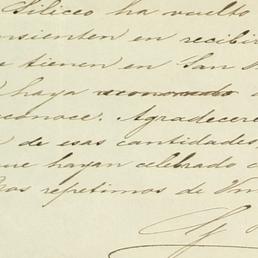 Siliceo ha vuelto
nsienten en recibir
e tienen en San
haya reconocido
econoce. Agradecere
de esas cantidades,
ue hayan celebrado
Nos repetimos de Vm